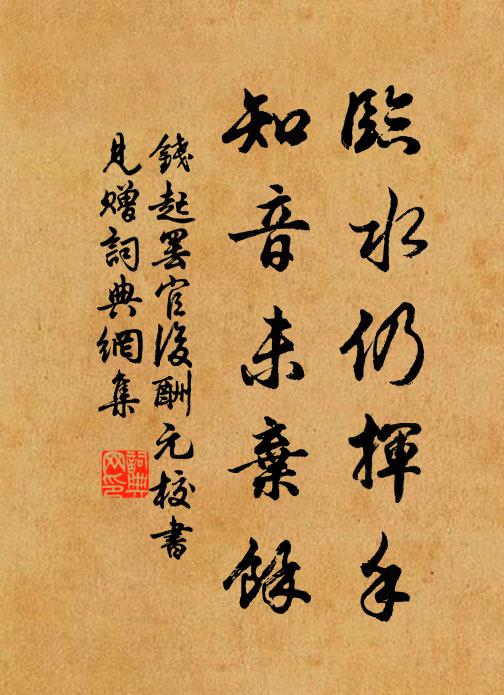 臨水仍揮手
知音未棄餘
錢起罷官後酬元校書
見贈詞典網集
詞典
网印